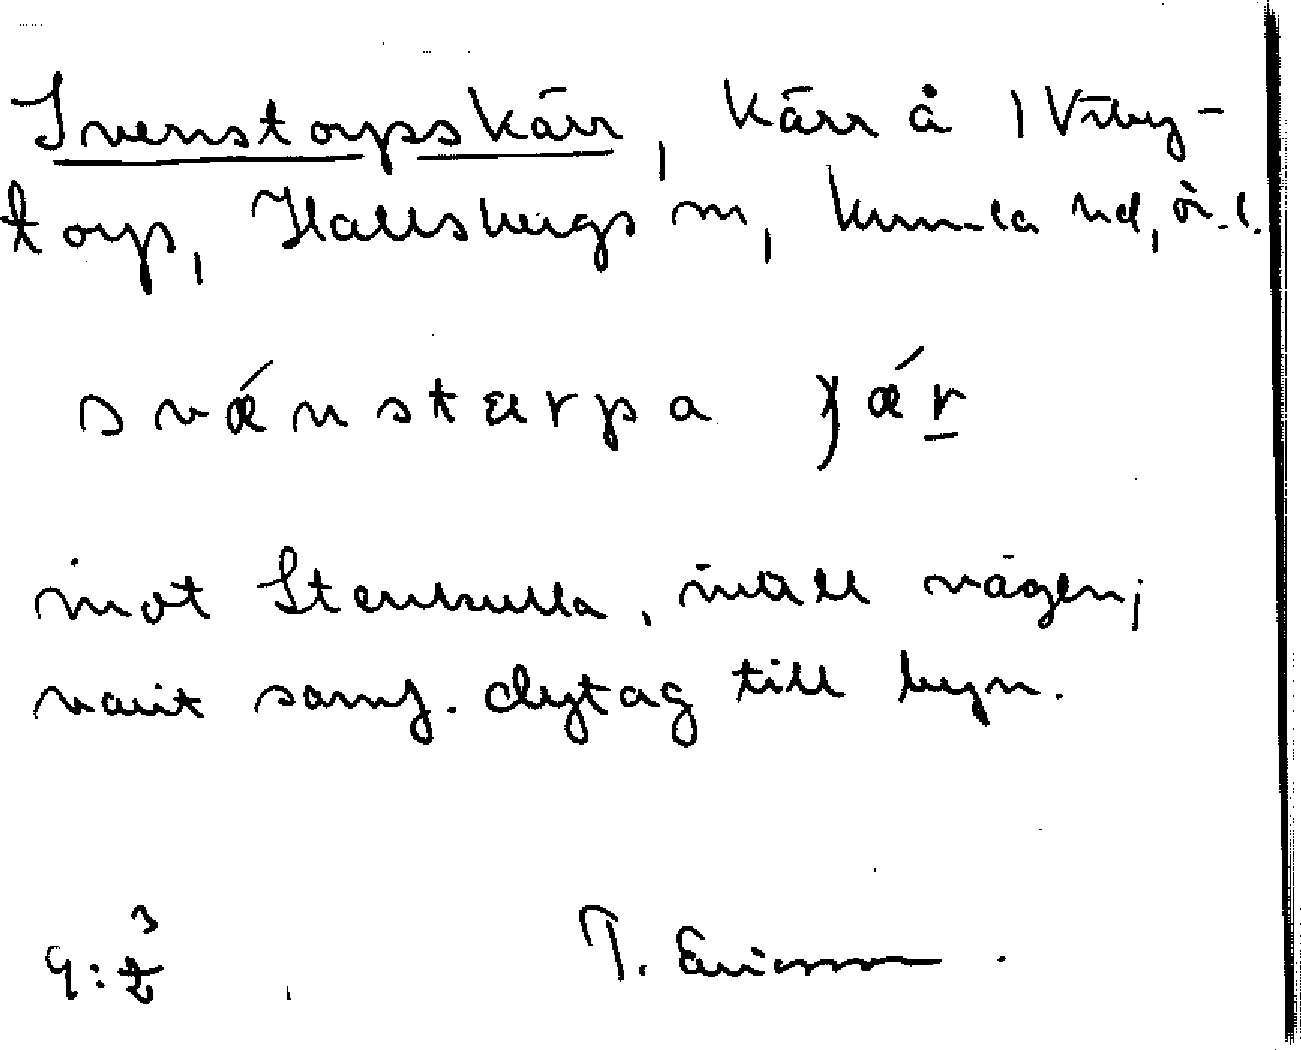 Svenstorpskärr, kärr å 1 Vibytorp,
Hallsbergs sn, Kumla hd, ör. l.
svǽnstarpa ɟǽr
mot Stenkulla, intill vägen;
varit samf. dytag till byn.
9:2 3
T. Ericsson.